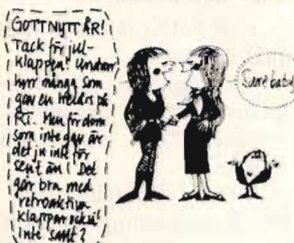 GOTT NYTT ÅR!
Tack för jul-
klappen! Undrar
hur många som
gav en helårs på
RT. Men för dom
som inte gav är
det ju inte för
sent än! Det
går bra med
retroaktiva
klappar också!
Inte sant?